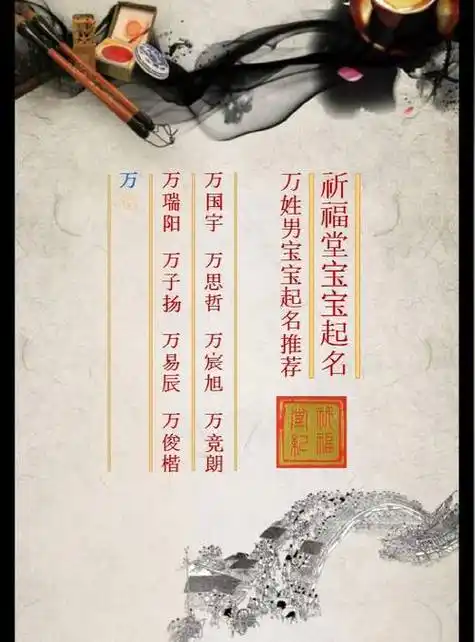 祈福堂宝宝起名
万姓男宝宝起名推荐
万国宇 万思哲 万宸旭 万竞朗
万瑞阳 万子扬 万易辰 万俊楷
万